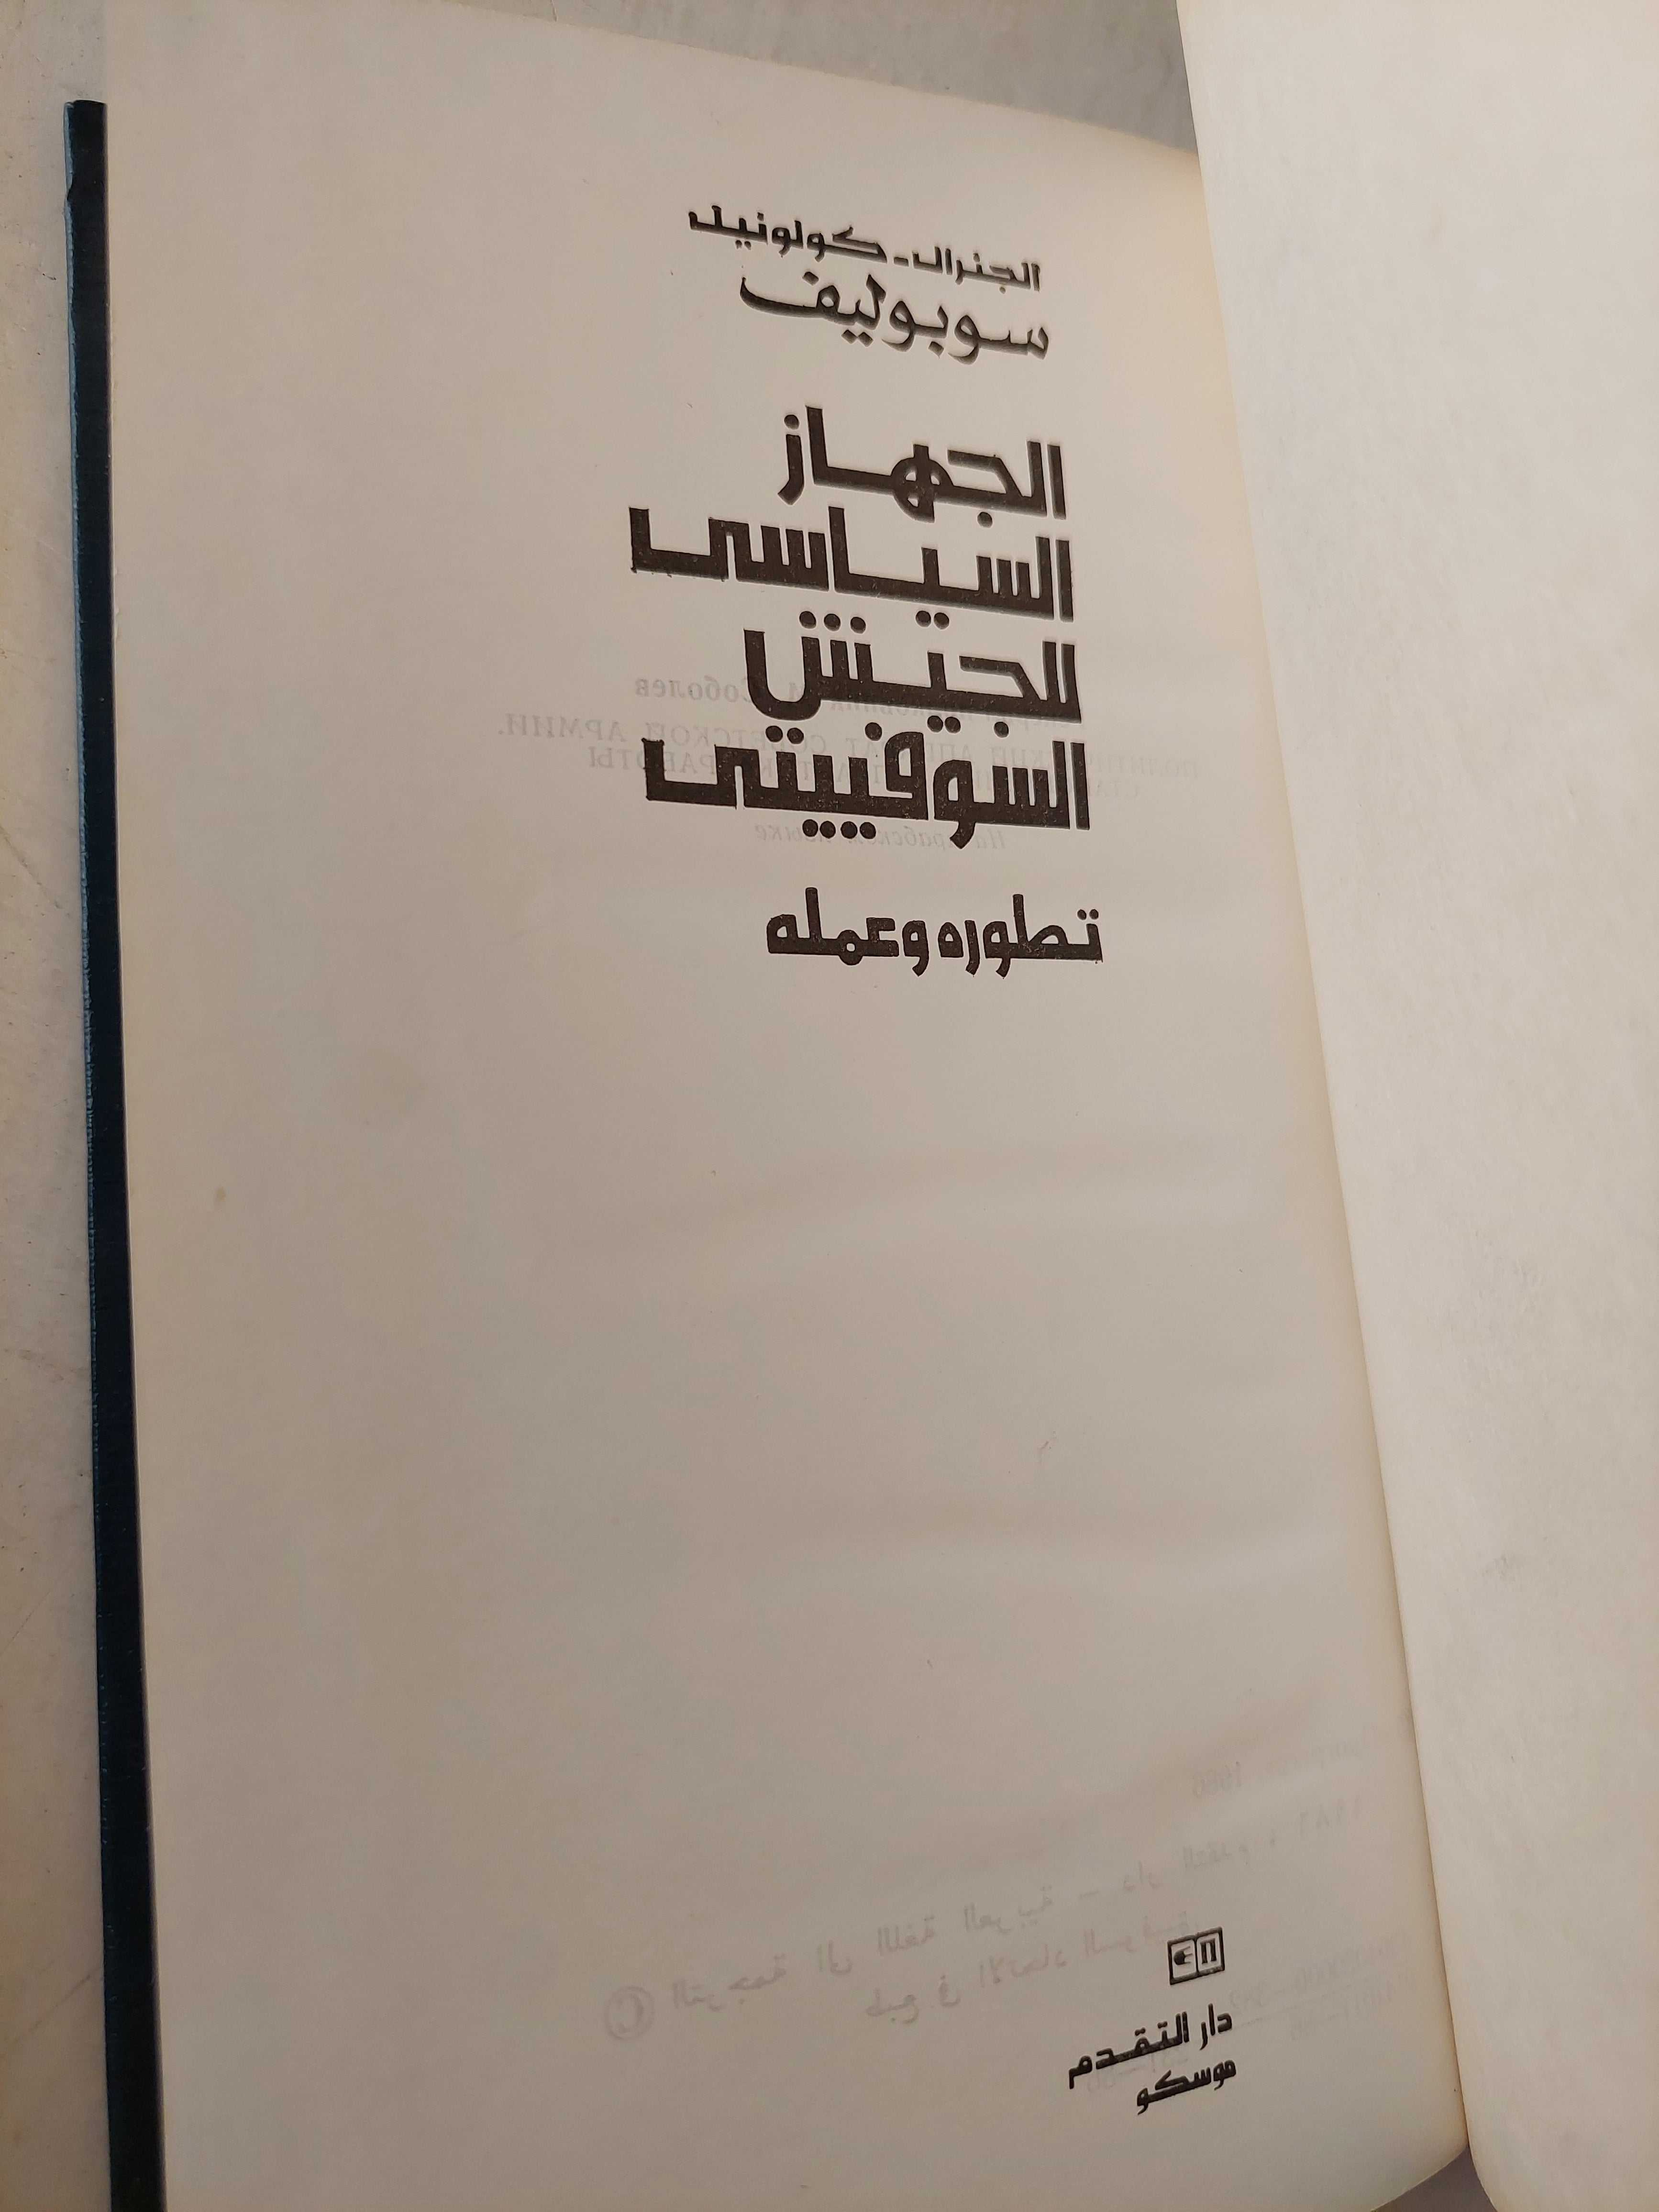 الجنرال-كولونيل
سوبوليف
الجهاز
السياسى
للجيش
السوفييتى
تطوره وعمله
دار التقدم
موسكو